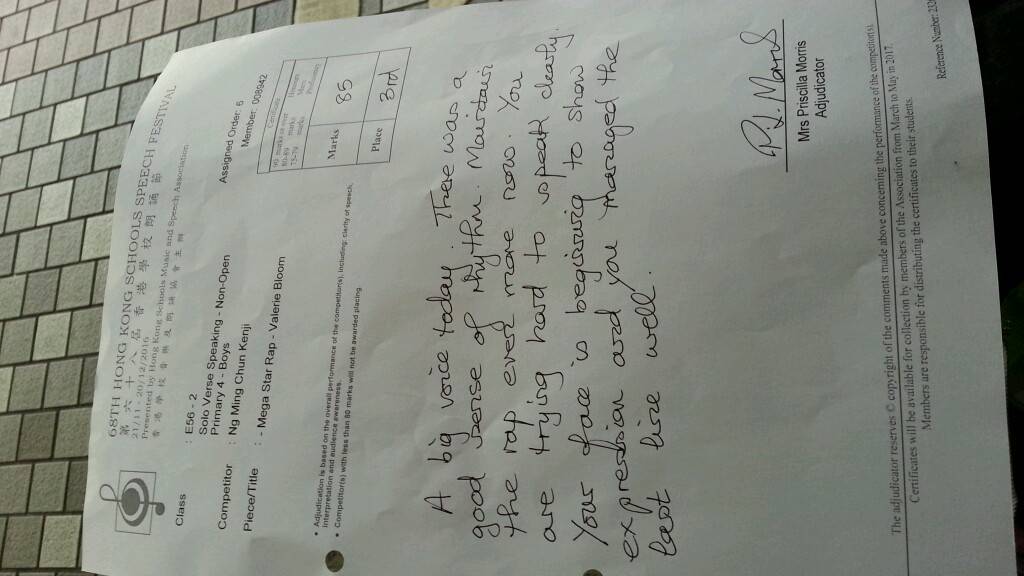 68TH HONG KONG SCHOOLS SPEECH FESTIVAL
第六十八屆香港學校朗誦節
21/11 - 20/12/2016
Presented by Hong Kong Schools Music and Speech Association
香港學校音樂及朗誦協會主辦
Class : E56 - 2
Solo Verse Speaking - Non-Open
Primary 4 - Boys
Assigned Order: 6
Competitor : Ng Ming Chun Kenji
Member: 008942
Piece/Title : - Mega Star Rap - Valerie Bloom
Certificates
90 marks or over Honours
80-89 marks Merit
75-79 marks Proficiency
Marks 85
Place 3rd
• Adjudication is based on the overall performance of the competitor(s), including: clarity of speech, interpretation and audience awareness.
• Competitor(s) with less than 80 marks will not be awarded placing
A big voice today. There was a
good sense of rhythm. Maintain
the rap even more now. You
are trying hard to speak clearly.
Your face is beginning to show
expression and you managed the
last line well.
Mrs Priscilla Morris
Adjudicator
The adjudicator reserves © copyright of the comments made above concerning the performance of the competitor(s).
Certificates will be available for collection by members of the Association from March to May in 2017.
Members are responsible for distributing the certificates to their students.
Reference Number: